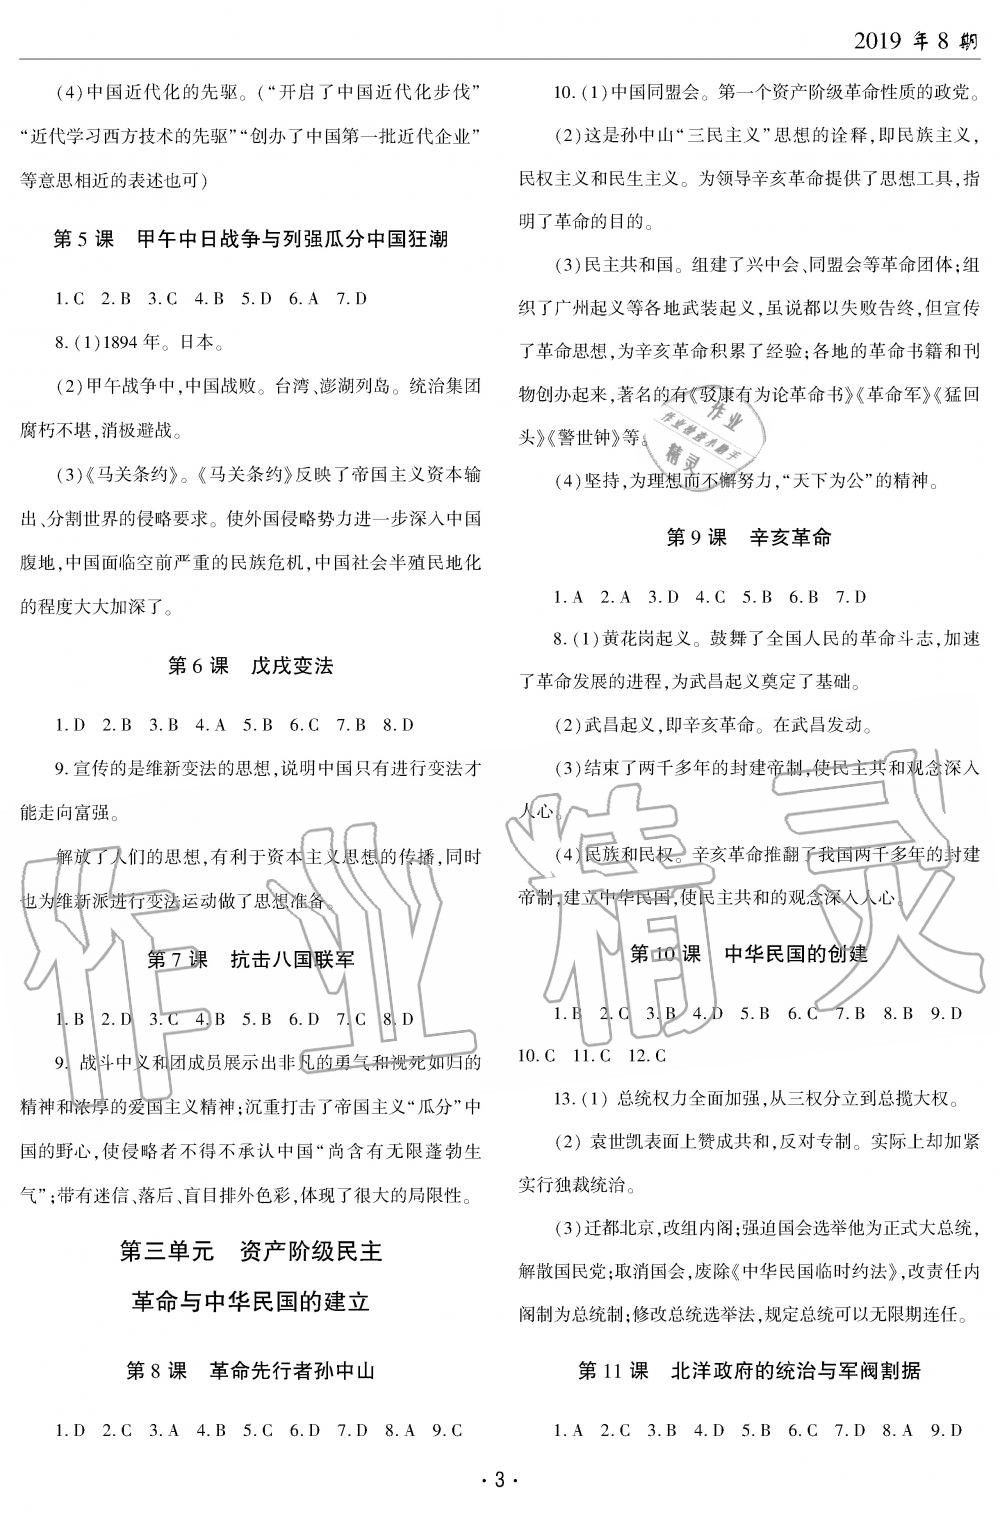 2019 年 8 期
(4)中国近代化的先驱。(“开启了中国近代化步伐”
“近代学习西方技术的先驱”“创办了中国第一批近代企业”
等意思相近的表述也可)
第 5 课 甲午中日战争与列强瓜分中国狂潮
1. C 2. B 3. C 4. B 5. D 6. A 7. D
8. (1)1894 年。日本。
(2)甲午战争中,中国战败。台湾、澎湖列岛。统治集团
腐朽不堪,消极避战。
(3)《马关条约》。《马关条约》反映了帝国主义资本输
出、分割世界的侵略要求。使外国侵略势力进一步深入中国
腹地,中国面临空前严重的民族危机,中国社会半殖民地化
的程度大大加深了。
第 6 课 戊戌变法
1. D 2. B 3. B 4. A 5. B 6. C 7. B 8. D
9. 宣传的是维新变法的思想,说明中国只有进行变法才
能走向富强。
解放了人们的思想,有利于资本主义思想的传播,同时
也为维新派进行变法运动做了思想准备。
第 7 课 抗击八国联军
1. B 2. D 3. C 4. B 5. B 6. D 7. C 8. D
9. 战斗中义和团成员展示出非凡的勇气和视死如归的
精神和浓厚的爱国主义精神;沉重打击了帝国主义“瓜分”中
国的野心,使侵略者不得不承认中国“尚含有无限蓬勃生
气”;带有迷信、落后、盲目排外色彩,体现了很大的局限性。
第三单元 资产阶级民主
革命与中华民国的建立
第 8 课 革命先行者孙中山
1. D 2. C 3. A 4. B 5. C 6. D 7. D 8. A 9. C
10. (1)中国同盟会。第一个资产阶级革命性质的政党。
(2)这是孙中山“三民主义”思想的诠释,即民族主义,
民权主义和民生主义。为领导辛亥革命提供了思想工具,指
明了革命的目的。
(3)民主共和国。组建了兴中会、同盟会等革命团体;组
织了广州起义等各地武装起义,虽说都以失败告终,但宣传
了革命思想,为辛亥革命积累了经验;各地的革命书籍和刊
物创办起来,著名的有《驳康有为论革命书》《革命军》《猛回
头》《警世钟》等。
(4)坚持,为理想而不懈努力,“天下为公”的精神。
第 9 课 辛亥革命
1. A 2. A 3. D 4. C 5. B 6. B 7. D
8. (1)黄花岗起义。鼓舞了全国人民的革命斗志,加速
了革命发展的进程,为武昌起义奠定了基础。
(2)武昌起义,即辛亥革命。在武昌发动。
(3)结束了两千多年的封建帝制,使民主共和观念深入
人心。
(4)民族和民权。辛亥革命推翻了我国两千多年的封建
帝制,建立中华民国,使民主共和的观念深入人心。
第 10 课 中华民国的创建
1. B 2. C 3. B 4. D 5. B 6. C 7. B 8. B 9. D
10. C 11. C 12. C
13. (1) 总统权力全面加强,从三权分立到总揽大权。
(2) 袁世凯表面上赞成共和,反对专制。实际上却加紧
实行独裁统治。
(3)迁都北京,改组内阁;强迫国会选举他为正式大总统,
解散国民党;取消国会,废除《中华民国临时约法》,改责任内
阁制为总统制;修改总统选举法,规定总统可以无限期连任。
第 11 课 北洋政府的统治与军阀割据
1. A 2. A 3. B 4. D 5. B 6. C 7. D 8. A 9. D
· 3 ·
作业
作业检查小助手
精灵
作业精灵